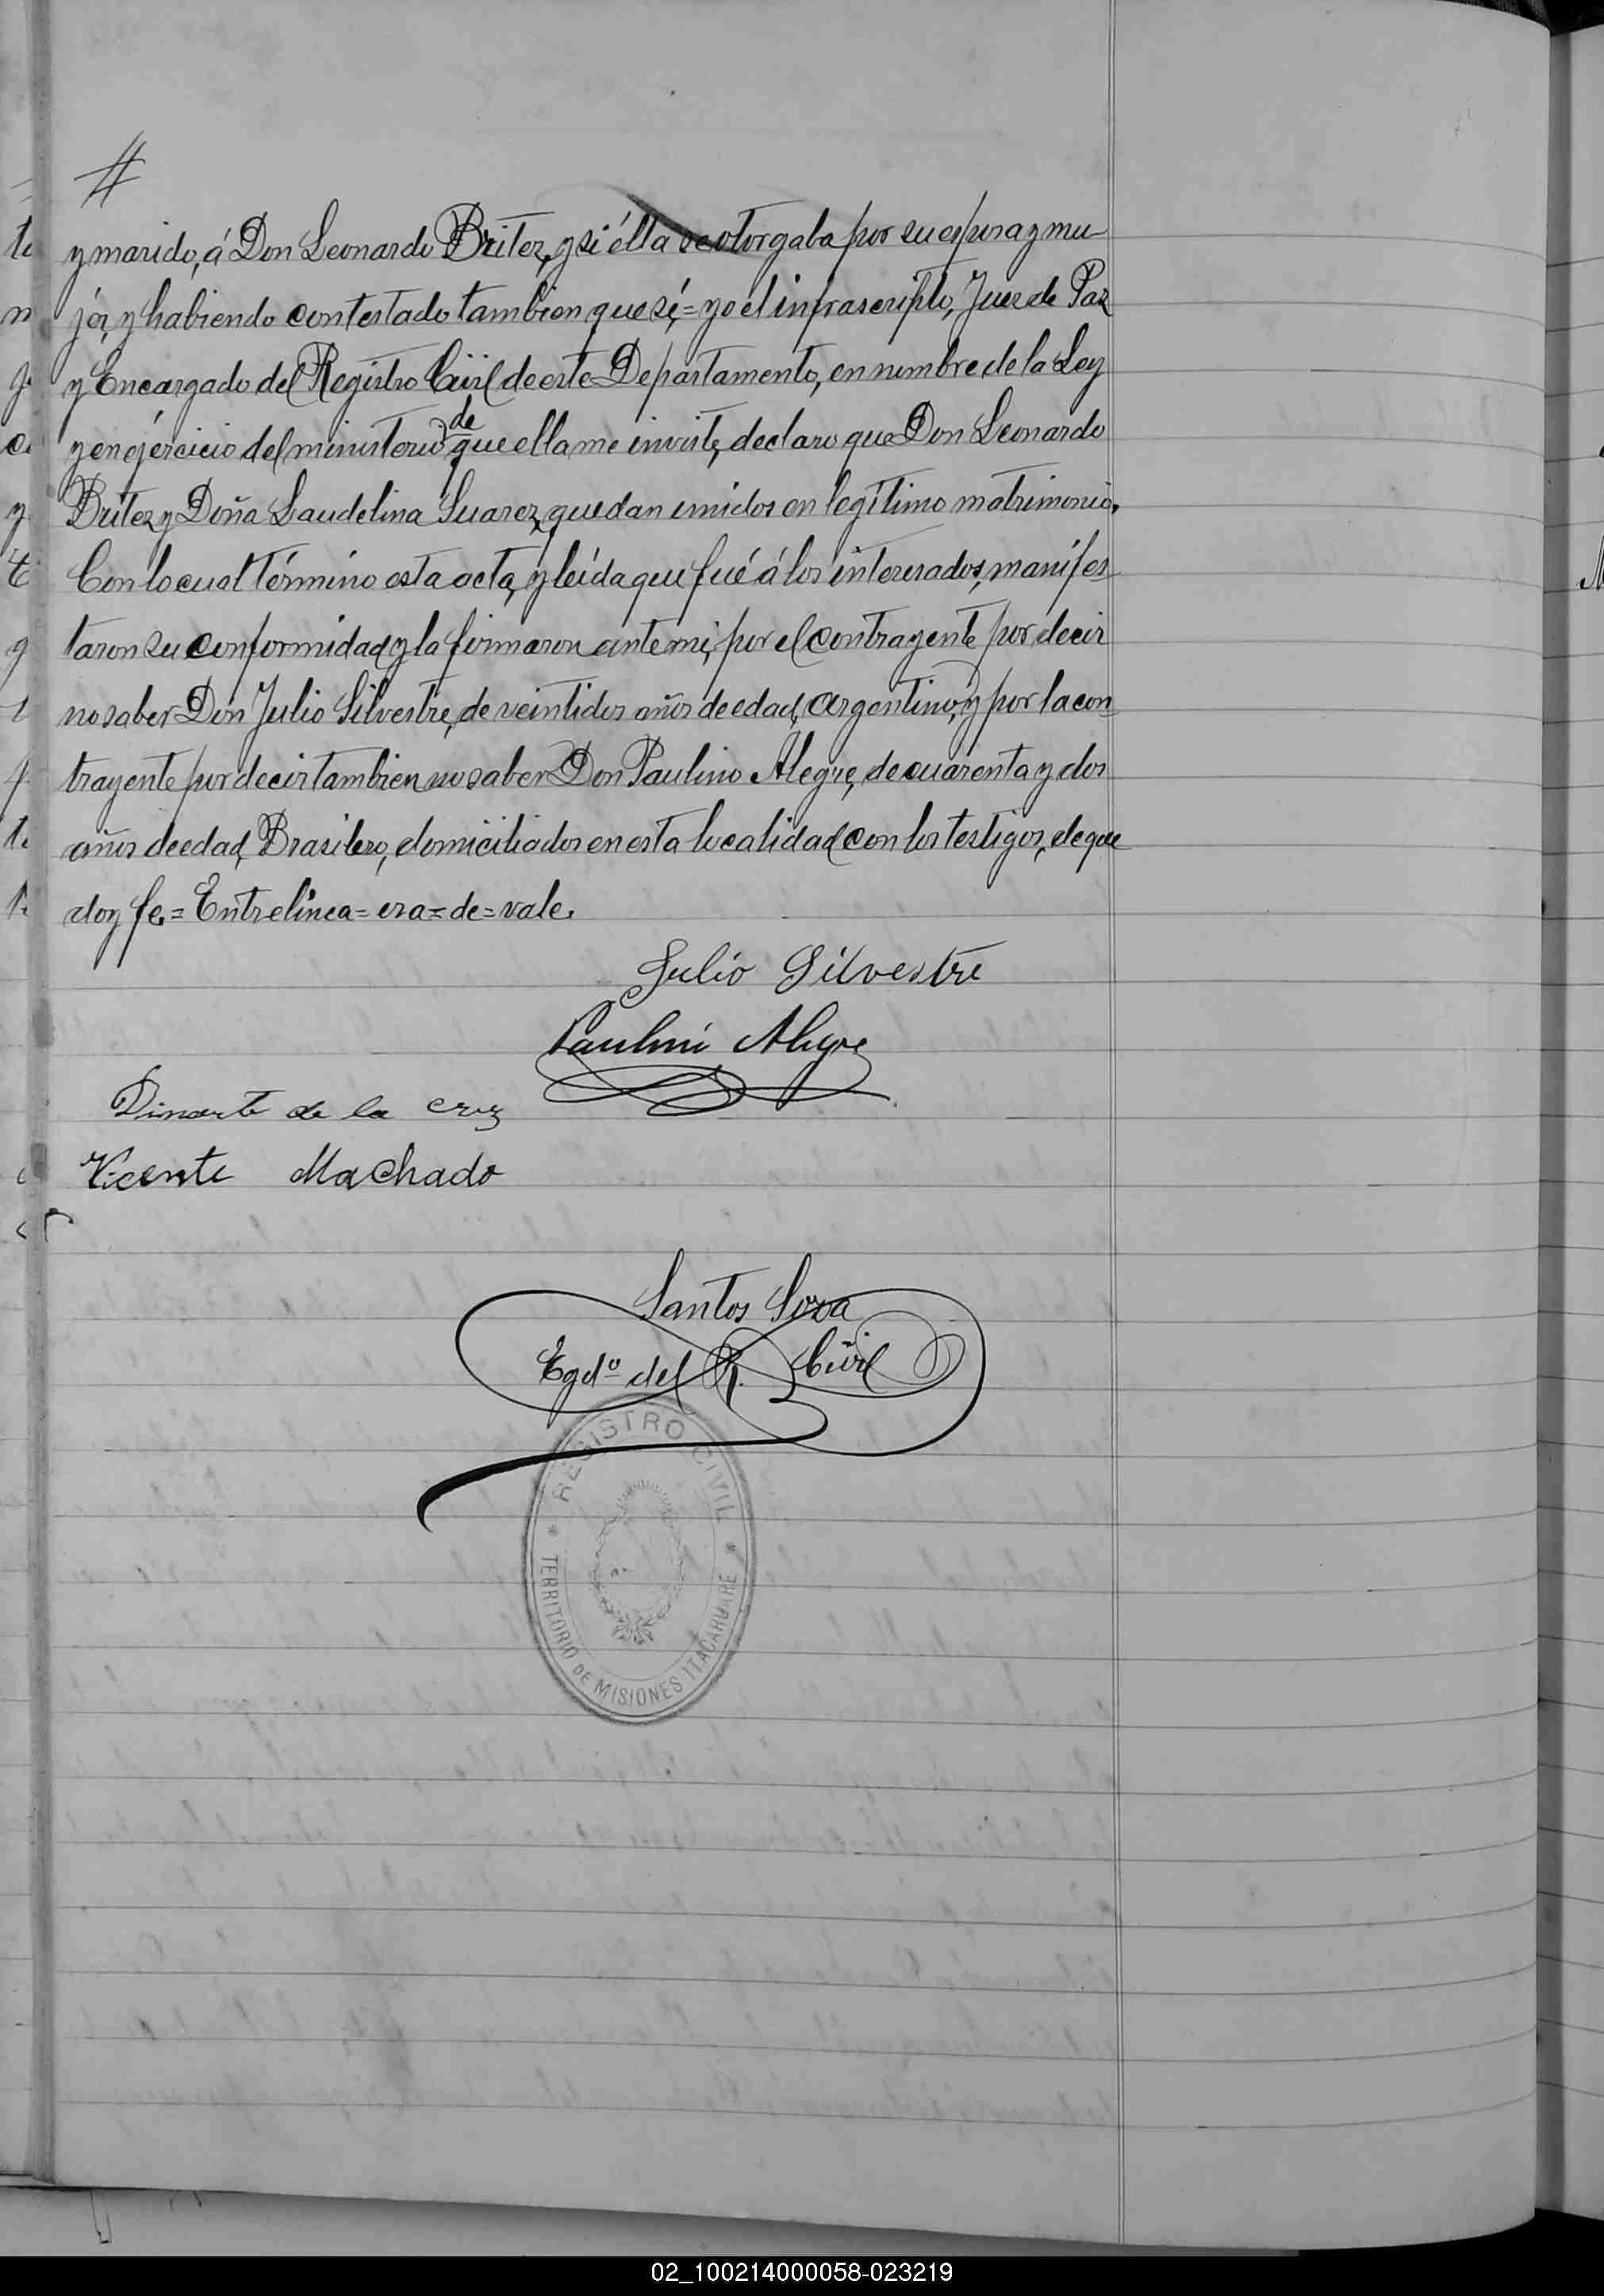 #
y marido, á Don Leonardo Britez, y si élla se otorgaba por su esposa y mu-
jér, y habiendo contestado tambien que sí;= yo el infrascripto, Juez de Paz
y Encargado del Registro Civil de este Departamento, en nombre de la Ley
y en ejércicio del ministerio de que ella me inviste, declaro que Don Leonardo
Britez y Doña Laudelina Suarez, quedan unidos en legítimo matrimonio.
Con lo cual término esta acta, y leída que fué á los interesados, manifes-
taron su conformidad y la firmaron ante mi, por el contrayente por decir
no saber Don Julio Silvestre, de veintidos años de edad, argentino, y por la con-
trayente por decir tambien no saber Don Paulino Alegre, de cuarenta y dos
años de edad, Brasilero, domiciliados en esta localidad con los testigos, de que
doy fe.= Entrelínea= era= de= vale.
Julio Silvestre
Paulino Alegre
Dinarte de la cruz
Vicente Machado
Santos Sosa
Egdº del R. Civil
REGISTRO CIVIL
* TERRITORIO DE MISIONES ITACARUARE *
02_100214000058-023219